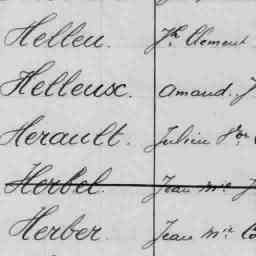 Helleu. Jh. Clement
Helleux. Amand. J
Herault. Julien Vor
Herbel. Jean Mie J
Herber. Jean Mie Co